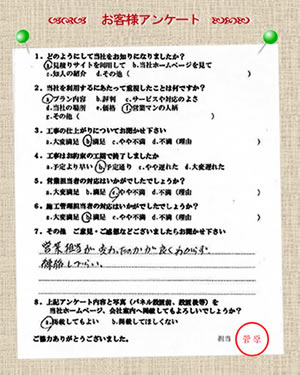 お客様アンケート
1. どのようにして当社をお知りになりましたか?
a.見積りサイトを利用して b.当社ホームページを見て
c.知人の紹介 d.その他( )
2. 当社を利用するにあたって重視したことは何ですか?
a.プラン内容 b.評判 c.サービスや対応のよさ
d.当社の場所 e.価格 f.営業マンの人柄
g.その他( )
3. 工事の仕上がりについてお聞かせ下さい
a.大変満足 b.満足 c.やや不満 d.不満(理由 )
4. 工事はお約束の工期で終了しましたか
a.予定より早い b.予定通り c.やや遅れた d.大変遅れた
5. 営業担当者の対応はいかがでしたでしょうか?
a.大変満足 b.満足 c.やや不満 d.不満(理由 )
6. 施工管理担当者の対応はいかがでしたでしょうか?
a.大変満足 b.満足 c.やや不満 d.不満(理由 )
7. その他 ご意見・ご感想などございましたらお聞かせ下さい
営業担当が変わったのかが良くわからず、
連絡しづらい。
8. 上記アンケート内容と写真(パネル設置前、設置後等)を
当社ホームページ、会社案内へ掲載してもよろしいでしょうか?
a.掲載してもよい b.掲載してほしくない
ご協力ありがとうございました。
担当 菅原